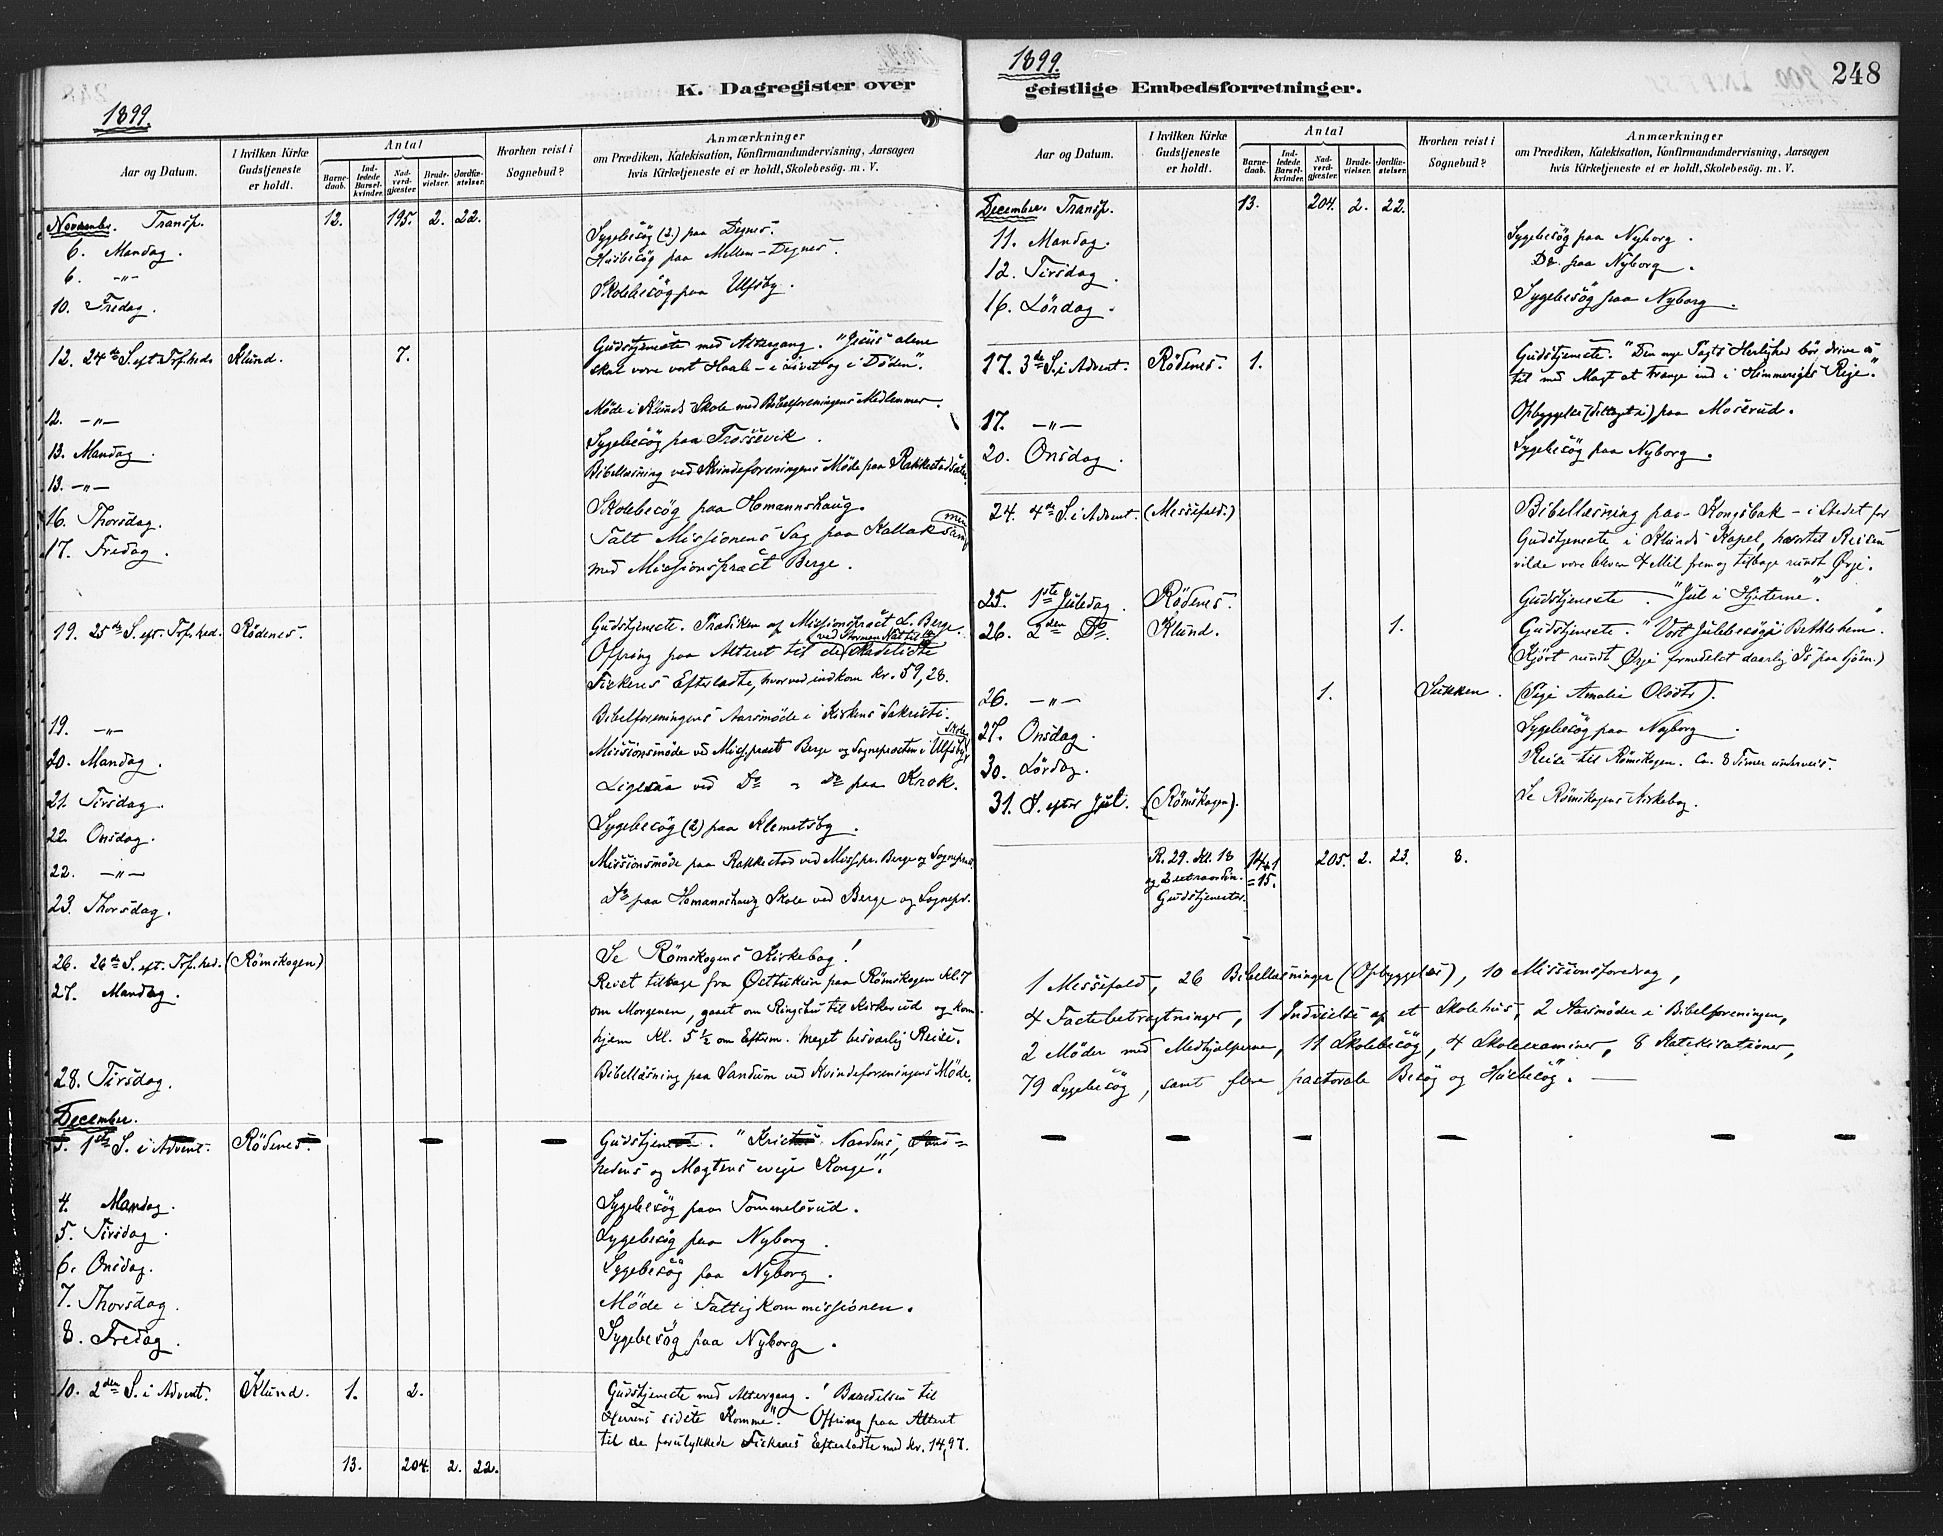 248
1899.
K. Dagregister over
Aar og Datum.
I hvilken Kirke Gudstjeneste er holdt.
Antal
Barne-daab.
Ind-ledede Barsel-kvinder.
Nad-verd-gjæster
Brude-vielser.
Jordfæ-stelser.
Hvorhen reist i Sognebud?
Anmærkninger
om Prædiken, Katekisation, Konfirmandundervisning, Aarsagen
hvis Kirketjeneste ei er holdt, Skolebesög. m. V.
November. Transp. 12. 195. 2. 22.
6. Mandag. Sygebesög (2) paa Degnes.
6. -"- Husbesög paa Mellem-Degnes.
10. Fredag. Skolebesög paa Ulfsby.
12. 24de S. eft. Tref.heds Klund. 7. Gudstjeneste med Altergang. "Jesus alene
skal være vort Haab - i Livet og i Döden".
12. -"- Möde i Klunds Skole med Bibelforeningens Medlemmer.
13. Mandag. Sygebesög paa Trossevik.
13. -"- Bibellæsning ved Kvindeforeningens Möde paa
16. Thorsdag. Skolebesög paa Homannshaug.
17. Fredag. Talt Missionens Sag paa Kallak sammen
med Missionspræst Berge.
19. 25de S. eft. Tref.hed. Rödenes. Gudstjeneste. Prædiken af Missionspræst L. Berge.
Offring paa Alteret til de
Fiskeres Efterladte, hvorved indkom kr. 59,28.
19. -"- Bibelforeningens Aarsmöde i Kirkens Sakristi.
20. Mandag. Missionsmöde ved Miss.præst Berge og Sognepræsten i Ulfsby Skole
21. Tirsdag. Ligesaa ved Do " do paa Krok.
22. Onsdag. Sygebesög (2) paa Klemetsby.
22. -"- Missionsmöde paa Rakkestad ved Miss.pr. Berge og Sognepræst.
23. Thorsdag. Do paa Homannshaug Skole ved Berge og Sognepr.
26. 26de S. eft. Tref.hed. (Römskogen) Se Römskogens Kirkebog!
27. Mandag. Reist tilbage fra paa Römskogen Kl. 7
om Morgenen, gaaet om Ringsbu til Kirkerud og kom
hjem Kl. 5 1/2 om Efterm. Meget besværlig Reise.
28. Tirsdag. Bibellæsning paa Sandum ved Kvindeforeningens Möde.
December.
3. 1ste S. i Advent. Rödenes. Gudstjeneste. "Kristus Naadens, Sand-
hedens og Magtens evige Konge".
4. Mandag. Sygebesög paa Tommelsrud.
5. Tirsdag. Sygebesög paa Nyborg.
6. Onsdag. Sygebesög paa Nyborg.
7. Thorsdag. Möde i Fattigkommissionen.
8. Fredag. Sygebesög paa Nyborg.
10. 2den S. i Advent. Klund. 1. 2. Gudstjeneste med Altergang. "Beredelsen til
Herrens sidste Komme". Offring paa Alteret
til de forulykkede Fiskeres Efterladte med kr. 14,97.
13. 204. 2. 22.
1899.
geistlige Embedsforretninger.
248
Aar og Datum.
I hvilken Kirke Gudstjeneste er holdt.
Antal
Barne-daab.
Ind-ledede Barsel-kvinder.
Nad-verd-gjæster
Brude-vielser.
Jordfæ-stelser.
Hvorhen reist i Sognebud?
Anmærkninger
om Prædiken, Katekisation, Konfirmandundervisning, Aarsagen
hvis Kirketjeneste ei er holdt, Skolebesög. m. V.
December. Transp. 13. 204. 2. 22.
11. Mandag. Sygebesög paa Nyborg.
12. Tirsdag. Do. paa Nyborg.
16. Lördag. Sygebesög paa Nyborg.
17. 3die S. i Advent. Rödenes. 1. Gudstjeneste. "Den nye Pagts Herlighed bör drive os
til med Magt at trænge ind i Himmeriges Rige."
17. -"- Opbyggelse (deltaget i) paa Moserud.
20. Onsdag. Sygebesög paa Nyborg.
24. 4de S. i Advent. (Messefald.) Bibellæsning paa Kongsbak - i Stedet for
Gudstjeneste i Klunds Kapel, hvortil Reisen
vilde være bleven 4 Mil frem og tilbage rundt Ørje.
25. 1ste Juledag. Rödenes. Gudstjeneste. "Jul i Hjerterne."
26. 2den Do. Klund. 1. Gudstjeneste. "Vort Julebesög i Bethlehem".
(Kjört rundt Ørje formedelst daarlig Is paa Sjöen.)
26. -"- 1. Sukken. (Pige Amalie Olsdtr).
27. Onsdag. Sygebesög paa Nyborg.
30. Lördag. Reise til Römskogen. Ca. 8 Timer underveis.
31. S. efter Jul. (Römskogen). Se Römskogens Kirkebog.
R. 29. Kl. 18 14+1 205. 2. 23. 8.
og 2 extraordin. =15.
Gudstjenester.
1 Messefald, 26 Bibellæsninger (Opbyggelser), 10 Missionsforedrag,
4 Fastebetragtninger, 1 Indvielse af et Skolehus, 2 Aarsmöder i Bibelforeningen,
2 Möder med Medhjælperne, 11 Skolebesög, 4 Skoleexaminer, 8 Katekisationer,
79 Sygebesög, samt flere pastorale Besög og Husbesög. —